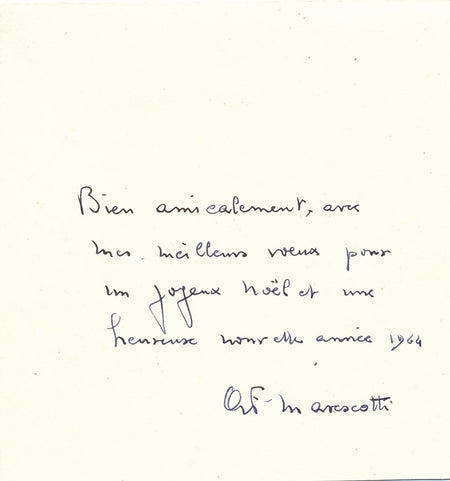 Bien amicalement, avec
mes meilleurs voeux pour
un joyeux Noël et une
heureuse nouvelle année 1964
Marescotti